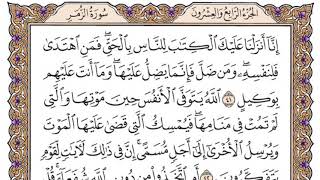 الجزء الرابع والعشرون
سورة الزمر
إِنَّا أَنزَلْنَا عَلَيْكَ ٱلْكِتَٰبَ لِلنَّاسِ بِٱلْحَقِّ فَمَنِ ٱهْتَدَىٰ
فَلِنَفْسِهِۦ وَمَن ضَلَّ فَإِنَّمَا يَضِلُّ عَلَيْهَا وَمَآ أَنتَ عَلَيْهِم
بِوَكِيلٍ ٤١ ٱللَّهُ يَتَوَفَّى ٱلْأَنفُسَ حِينَ مَوْتِهَا وَٱلَّتِى
لَمْ تَمُتْ فِى مَنَامِهَا فَيُمْسِكُ ٱلَّتِى قَضَىٰ عَلَيْهَا ٱلْمَوْتَ
وَيُرْسِلُ ٱلْأُخْرَىٰٓ إِلَىٰٓ أَجَلٍ مُّسَمًّى إِنَّ فِى ذَٰلِكَ لَءَايَٰتٍ لِّقَوْمٍ
يَتَفَكَّرُونَ ٤٢ أَمِ ٱتَّخَذُوا۟ مِن دُونِ ٱللَّهِ شُفَعَآءَ قُلْ